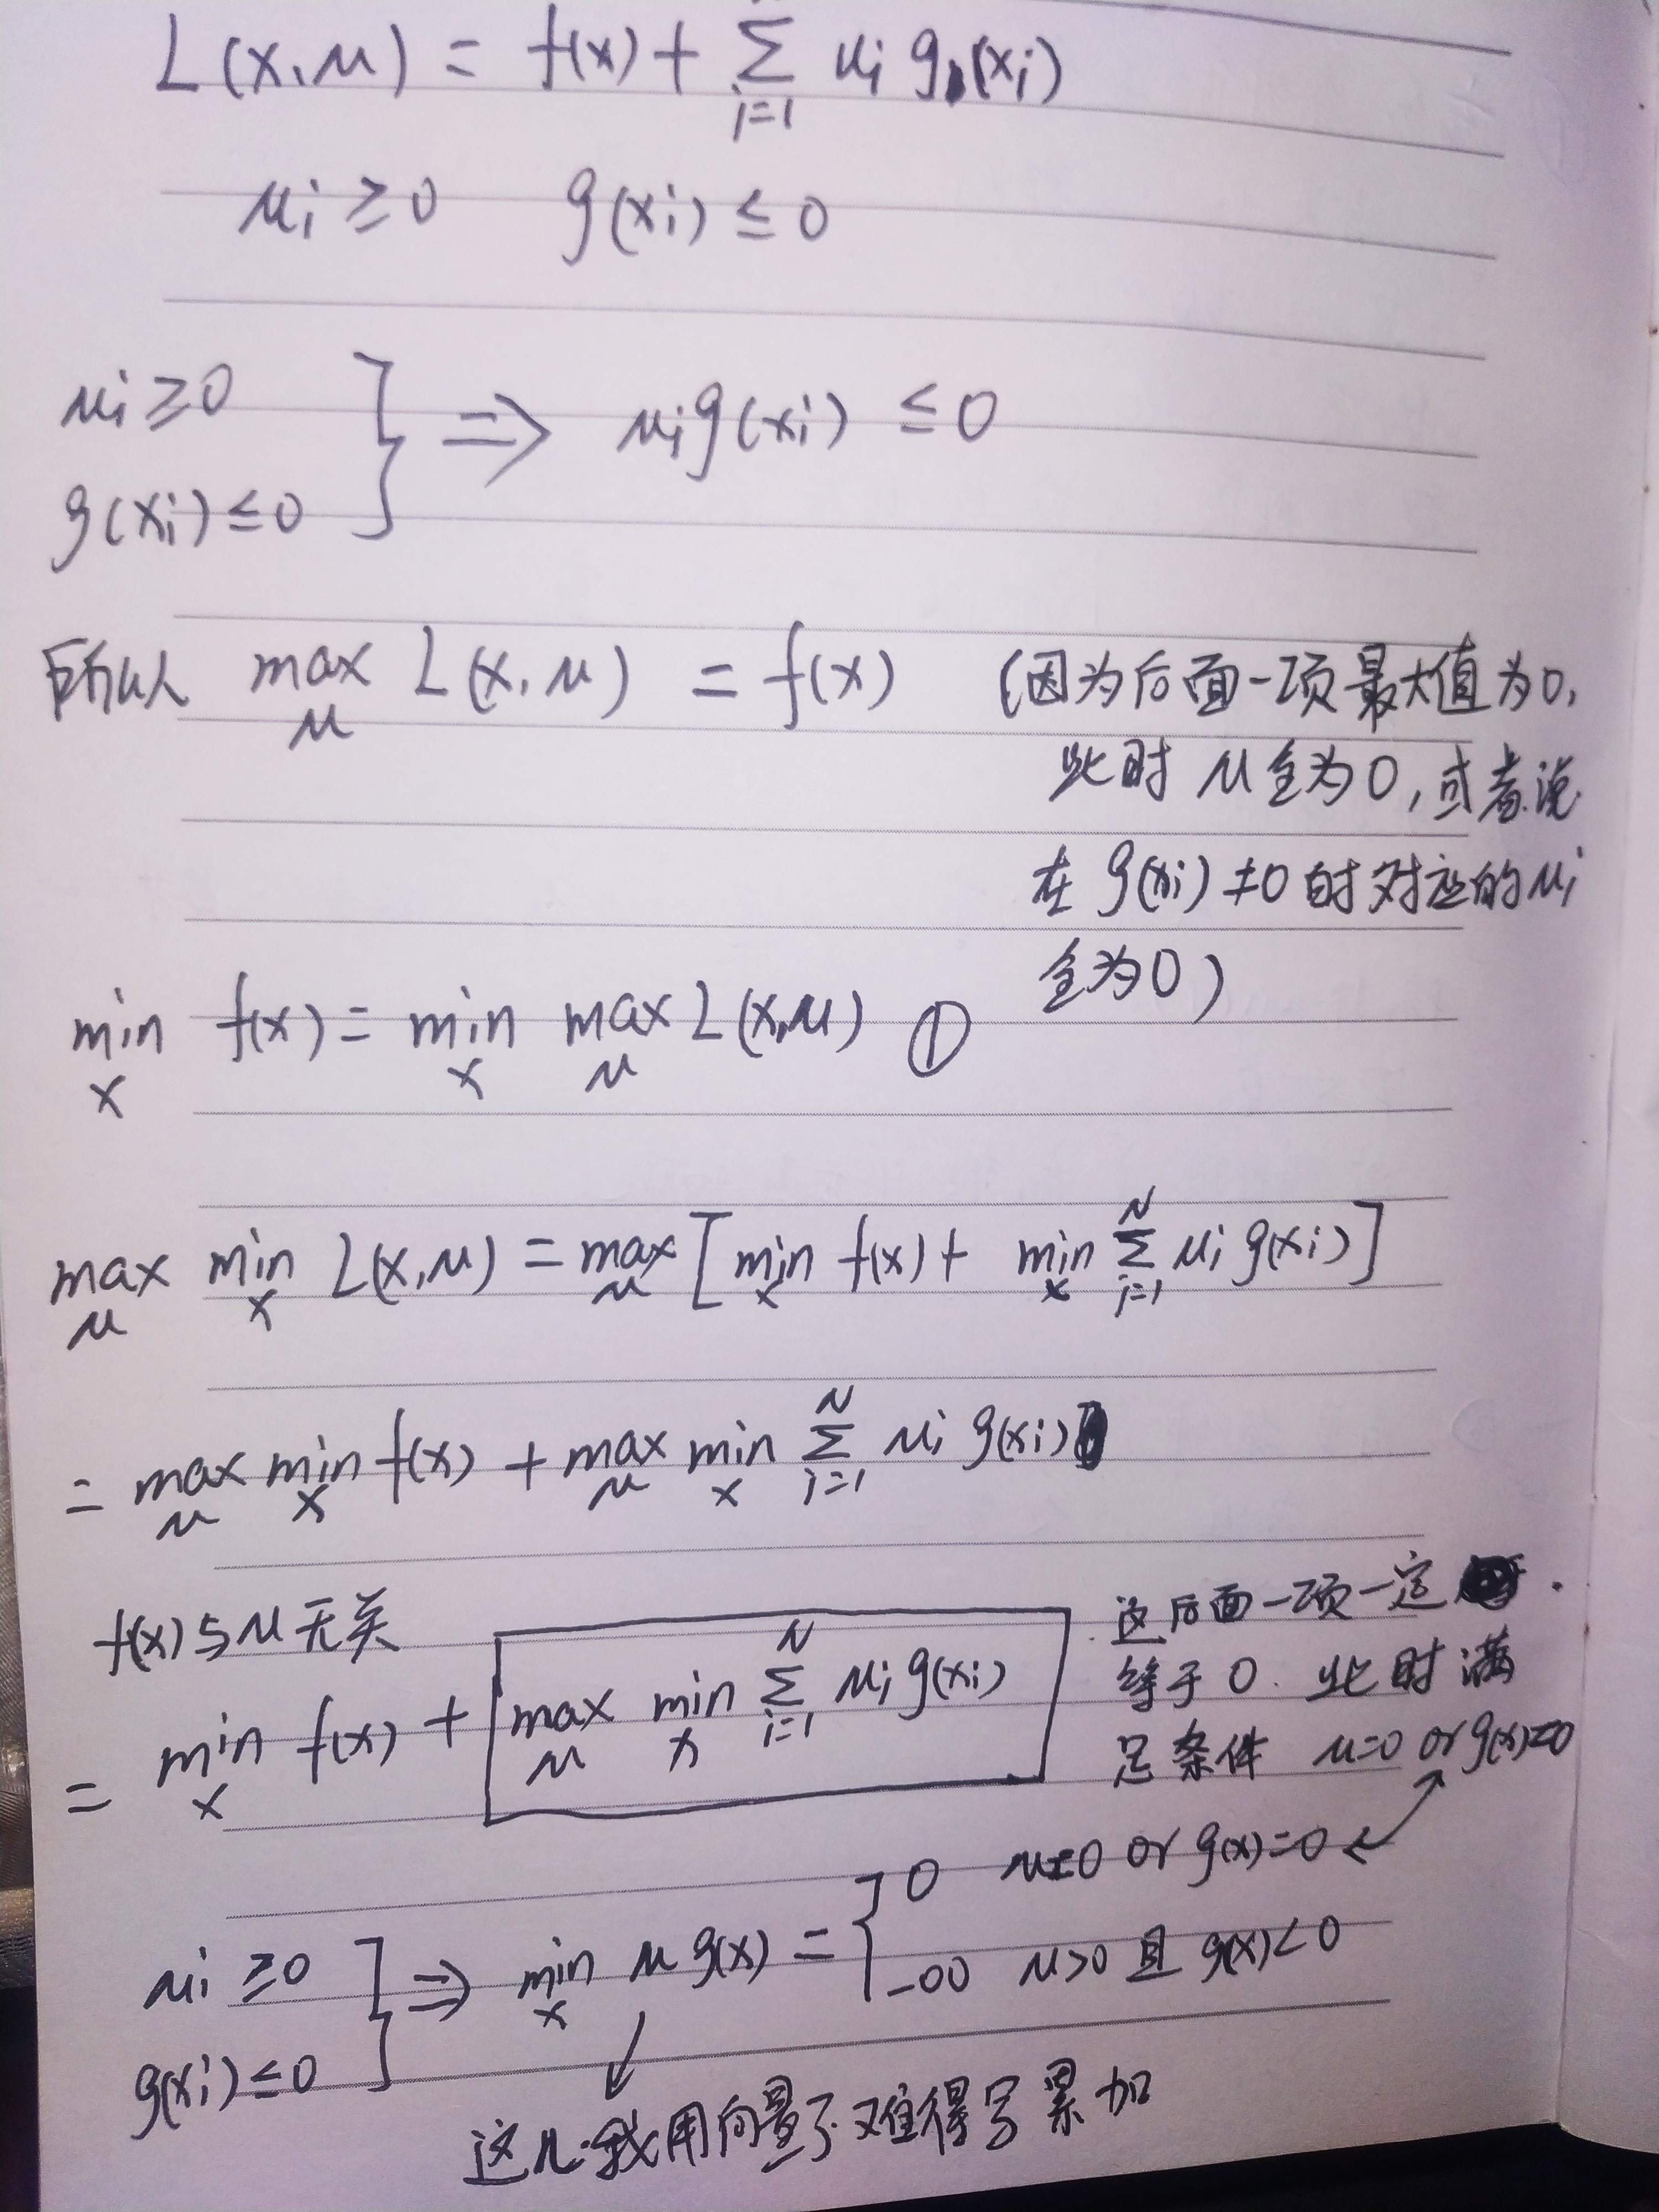 L(x,μ) = f(x) + Σ_{i=1} μi g(xi)
μi ≥ 0 g(xi) ≤ 0
μi ≥ 0
g(xi) ≤ 0 } ⇒ μi g(xi) ≤ 0
所以 max_μ L(x,μ) = f(x) (因为后面一项最大值为0,
此时 μ 全为0, 或者说
在 g(xi) ≠ 0 时对应的 μi
全为0)
min_x f(x) = min_x max_μ L(x,μ) ①
max_μ min_x L(x,μ) = max_μ [min_x f(x) + min_x Σ_{i=1}^N μi g(xi)]
= max_μ min_x f(x) + max_μ min_x Σ_{i=1}^N μi g(xi)
f(x) 与 μ 无关
= min_x f(x) + max_μ min_x Σ_{i=1}^N μi g(xi)
这后面一项一定
等于0. 此时满
足条件 μ=0 or g(x)=0
μi ≥ 0
g(xi) ≤ 0 } ⇒ min_x μ g(x) = { 0 μ=0 or g(x)=0
-∞ μ>0 且 g(x)<0
这儿我用向量了.懒得写累加